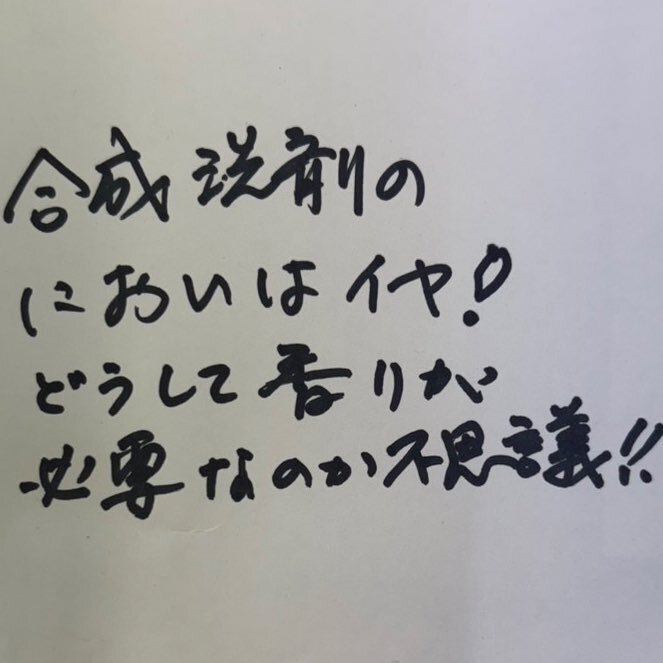 合成洗剤の
においはイヤ!
どうして香りが
必要なのか不思議!!